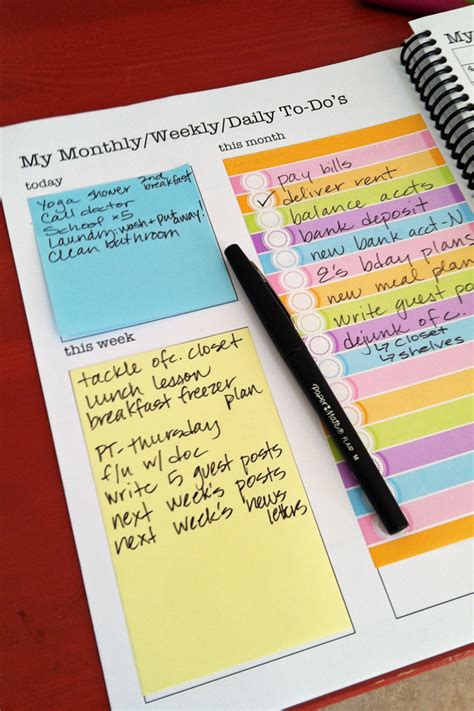 My Monthly/Weekly/Daily To-Do's
today
Yoga shower 2nd breakfast
Call doctor
School x5
Laundry: wash + put away!
Clean bathroom
this week
tackle ofc. closet
lunch lesson
breakfast freezer plan
PT-thursday
f/u w/doc
write 5 guest posts
next week's posts
next week's news letters
this month
pay bills
deliver rent
balance accts
bank deposit
new bank acct-N
E's bday plans
new meal plan
write guest po
dejunk ofc.
↳ closet
↳ shelves
Paper Mate® FLAIR M
My